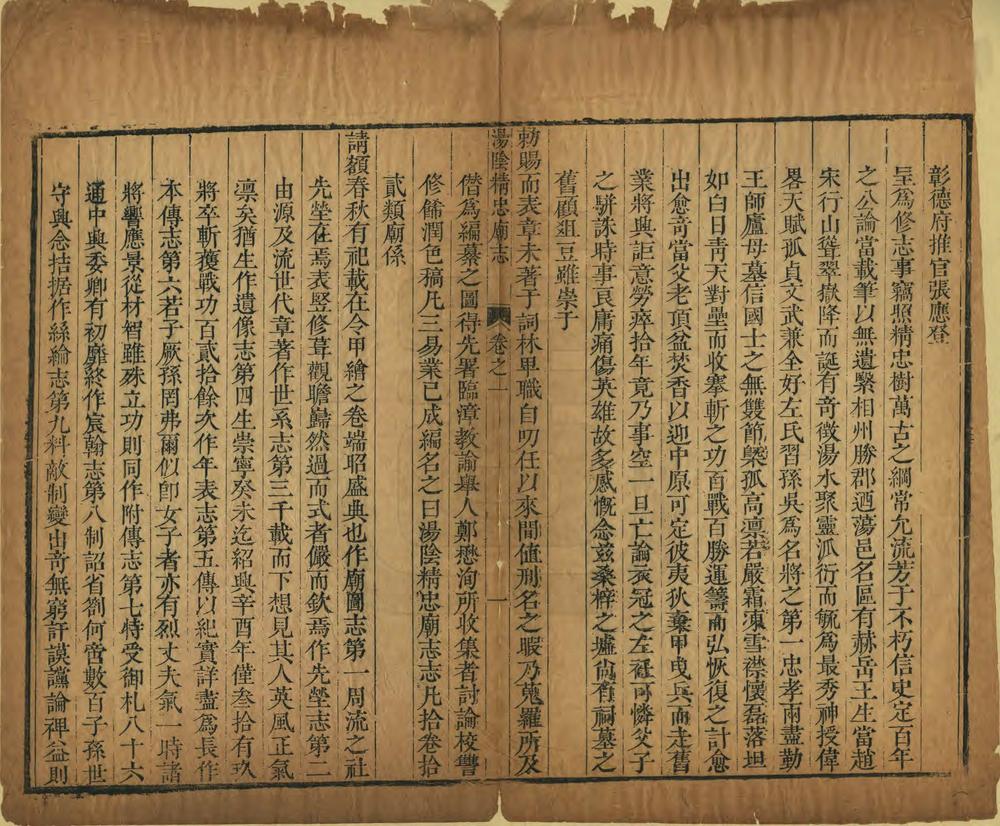 彰德府推官張應登
呈爲修志事竊照精忠樹萬古之綱常允流芳于不朽信史定百年
之公論當載筆以無遺緊相州勝郡迺蕩邑名區有赫岳王生當趙
宋行山聳翠嶽降而誕有奇徵湯水聚靈派衍而毓爲最秀神授偉
畧天賦孤貞文武兼全好左氏習孫吳爲名將之第一忠孝兩盡勤
王師廬母墓信國士之無雙節槩孤高凛若嚴霜凍雪襟懷磊落坦
如白日靑天對壘而收寨斬之功百戰百勝運籌而弘恢復之計愈
出愈奇當父老頂盆焚香以迎中原可定彼夷狄棄甲曳兵而走舊
業將興詎意勞瘁拾年竟乃事空一旦亡論衣冠之左袵可憐父子
之駢誅時事良庸痛傷英雄故多感慨念兹桑梓之墟尙有祠墓之
舊顧俎豆雖崇于
勑賜而表章未著于詞林卑職自叨任以來間值刑名之暇乃蒐羅所及
湯陰精忠廟志 卷之一 一
僭爲編纂之圖得先署臨漳教諭舉人鄭懋洵所收集者討論校讐
修餙潤色稿凡三易業已成編名之曰湯陰精忠廟志志凡拾卷拾
貳類廟係
請額春秋有祀載在令甲繪之卷端昭盛典也作廟圖志第一周流之社
先塋在焉表竪修葺觀瞻巋然過而式者儼而欽焉作先塋志第二
由源及流世代章著作世系志第三千載而下想見其人英風正氣
凛矣猶生作遺像志第四生崇寧癸未迄紹興辛酉年僅叁拾有玖
將卒斬獲戰功百貳拾餘次作年表志第五傳以紀實詳盡爲長作
本傳志第六若子厥孫罔弗爾似卽女子者亦有烈丈夫氣一時諸
將響應景從材智雖殊立功則同作附傳志第七特受御札八十六
通中興委卿有初靡終作宸翰志第八制詔省劄何啻數百子孫世
守興念拮据作絲綸志第九料敵制變出奇無窮訏謨讜論裨益則